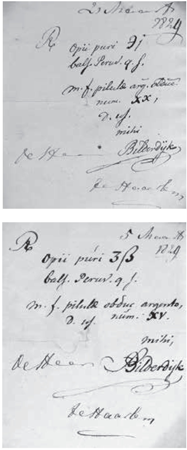 2 Maart
1829
R
Opii puri ℈j
balf. Peruv. q. s.
m. f. pilulæ arg. obduc
num. XX,
d. s.
mihi
de Heer Bilderdijk
te Haarlem
5 Maart
1829
R
Opii puri ʒß
balf. Peruv. q. s.
m. f. pilulæ obduc argento,
d. s. num. XV.
mihi,
de Heer Bilderdijk
te Haarlem